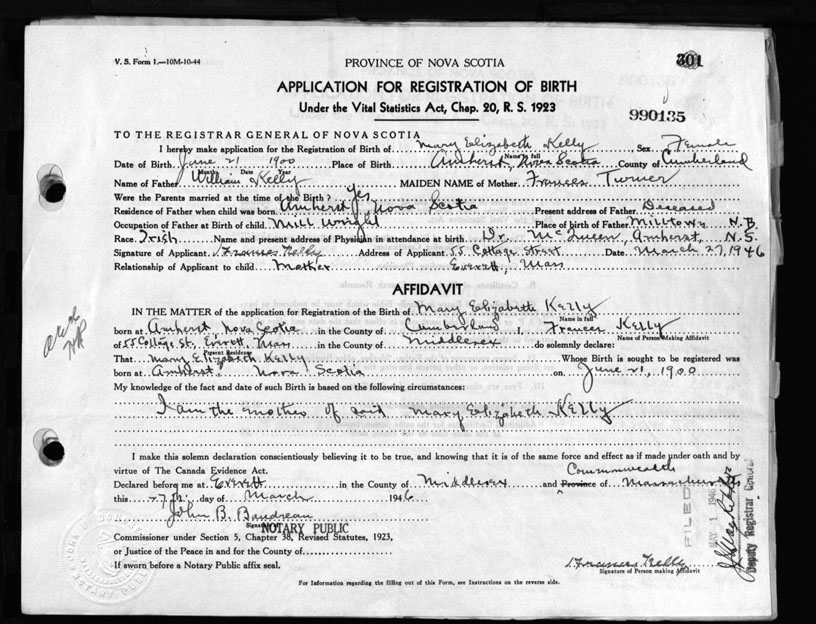 V. S. Form 1.—10M-10-44
PROVINCE OF NOVA SCOTIA
301
APPLICATION FOR REGISTRATION OF BIRTH
Under the Vital Statistics Act, Chap. 20, R. S. 1923
990135
TO THE REGISTRAR GENERAL OF NOVA SCOTIA
I hereby make application for the Registration of Birth of Mary Elizabeth Kelly Sex Female
Name in full
Date of Birth June 21 1900 Place of Birth Amherst, Nova Scotia County of Cumberland
Month Date Year
Name of Father William Kelly MAIDEN NAME of Mother Frances Turner
Were the Parents married at the time of the Birth? Yes
Residence of Father when child was born Amherst, Nova Scotia Present address of Father Deseased
Occupation of Father at Birth of child Mill Wright Place of birth of Father Milltown N.B.
Race Irish Name and present address of Physician in attendance at birth Dr. McQueen, Amherst, N.S.
Signature of Applicant Frances Kelly Address of Applicant 55 Cottage Street Date March 27, 1946
Relationship of Applicant to child Mother Everett, Mass
AFFIDAVIT
IN THE MATTER of the application for the Registration of the Birth of Mary Elizabeth Kelly
Name in full
born at Amherst Nova Scotia in the County of Cumberland I, Frances Kelly
Name of Person Making Affidavit
of 55 Cottage St, Everett, Mass in the County of Middlesex do solemnly declare:
Present Residence
That Mary Elizabeth Kelly Whose Birth is sought to be registered was
born at Amherst, Nova Scotia on June 21, 1900
My knowledge of the fact and date of such Birth is based on the following circumstances:
I am the mother of said Mary Elizabeth Kelly
I make this solemn declaration conscientiously believing it to be true, and knowing that it is of the same force and effect as if made under oath and by
virtue of The Canada Evidence Act.
Commonwealth
Declared before me at Everett in the County of Middlesex and Province of Massachusetts
this 27th day of March 1946
John B. Baudreau
NOTARY PUBLIC
Commissioner under Section 5, Chapter 38, Revised Statutes, 1923,
or Justice of the Peace in and for the County of
If sworn before a Notary Public affix seal.
Frances Kelly
Signature of Person making Affidavit
For Information regarding the filling out of this Form, see Instructions on the reverse side.
FILED
MAY 1 1946
Deputy Registrar General